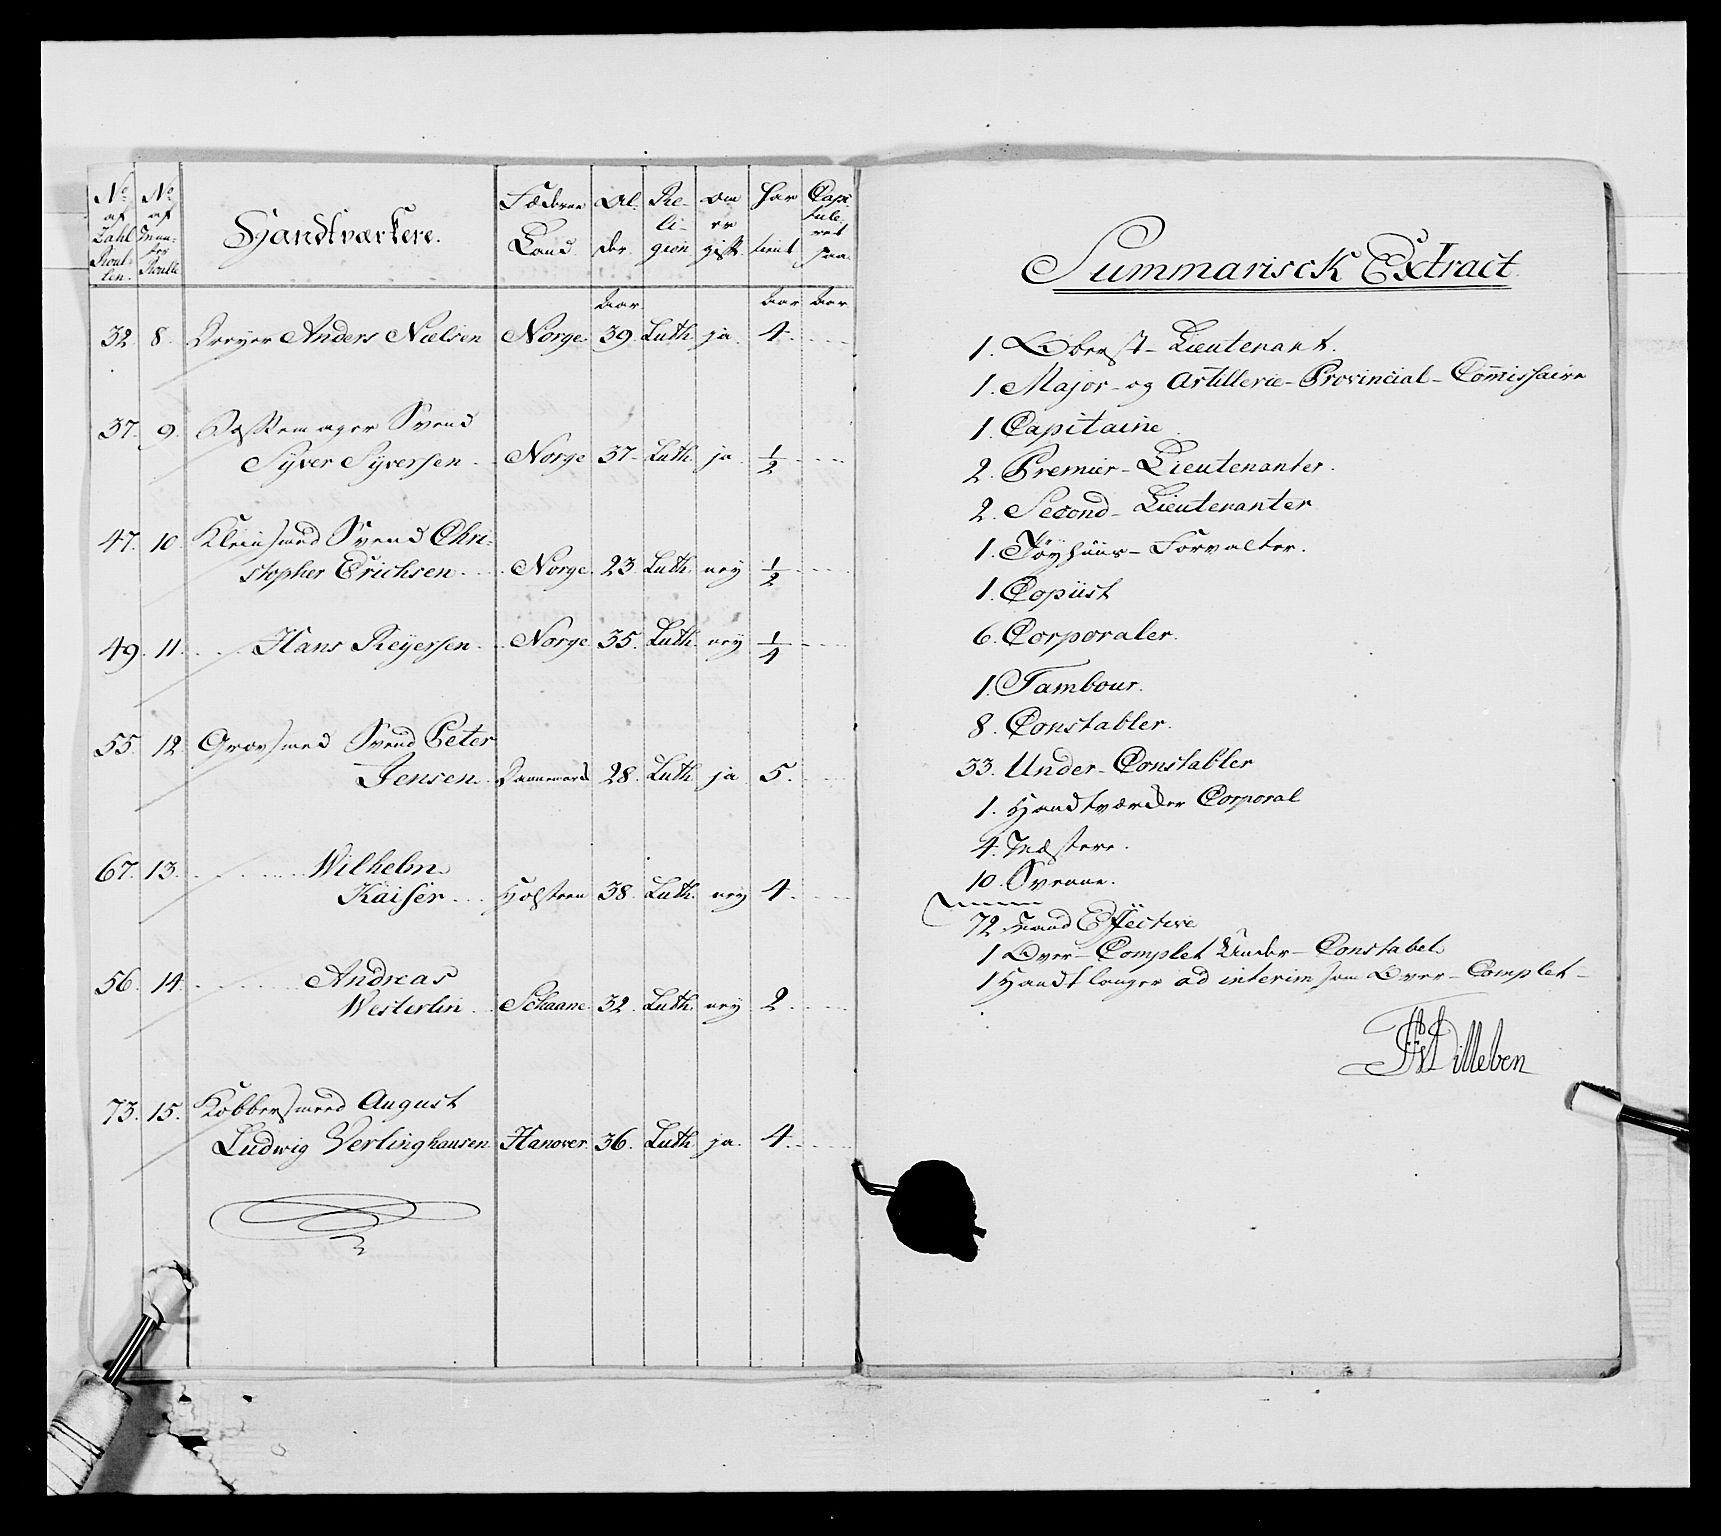 No af Zahl Roul- len.
No af Num- Roulle
Handtværkere.
Fæderne Land
Al- der.
Re- li- gion
Om er gift.
Har tient
Capi- tule- ret paa.
Aar
Aar
Aar
32 8. Dreyer Anders Nielsen Norge. 39. Luth. ja. 4.
37. 9. Svend
Syver Syversen Norge 37. Luth. ja. 1/2
47. 10. Kleinsmed Svend Chri-
stopher Erichsen Norge. 23. Luth. ney 1/2
49. 11. Hans Reyersen Norge 35. Luth. ney 1/4
55. 12. Grovsmed Svend Peter
Jensen Dannemark 28. Luth. ja 5.
67. 13. Wilhelm
Kaiser Holsteen 38. Luth. ney 4.
56. 14. Andreas
Westerlin Schaane. 32. Luth. ney 2.
73. 15. Kobbersmed August
Ludwig Verlinghausen Hanover. 36. Luth. ja. 4.
Summarisck Extract
1. Oberst-Lieutenant.
1. Major- og Artillerie-Provincial-Commissaire
1. Capitaine
2. Premier-Lieutenanter.
2. Second-Lieutenanter
1. Töyhuus-Forvalter.
1. Copiist
6. Corporaler.
1. Tambour.
8. Constabler.
33. Under-Constabler
1. Handtværcker Corporal
4. Mestere.
10. Svenne.
72 Mand Effective
1 Over-Complet Under-Constabel
1 Handtlanger ad interim som Over-Complet